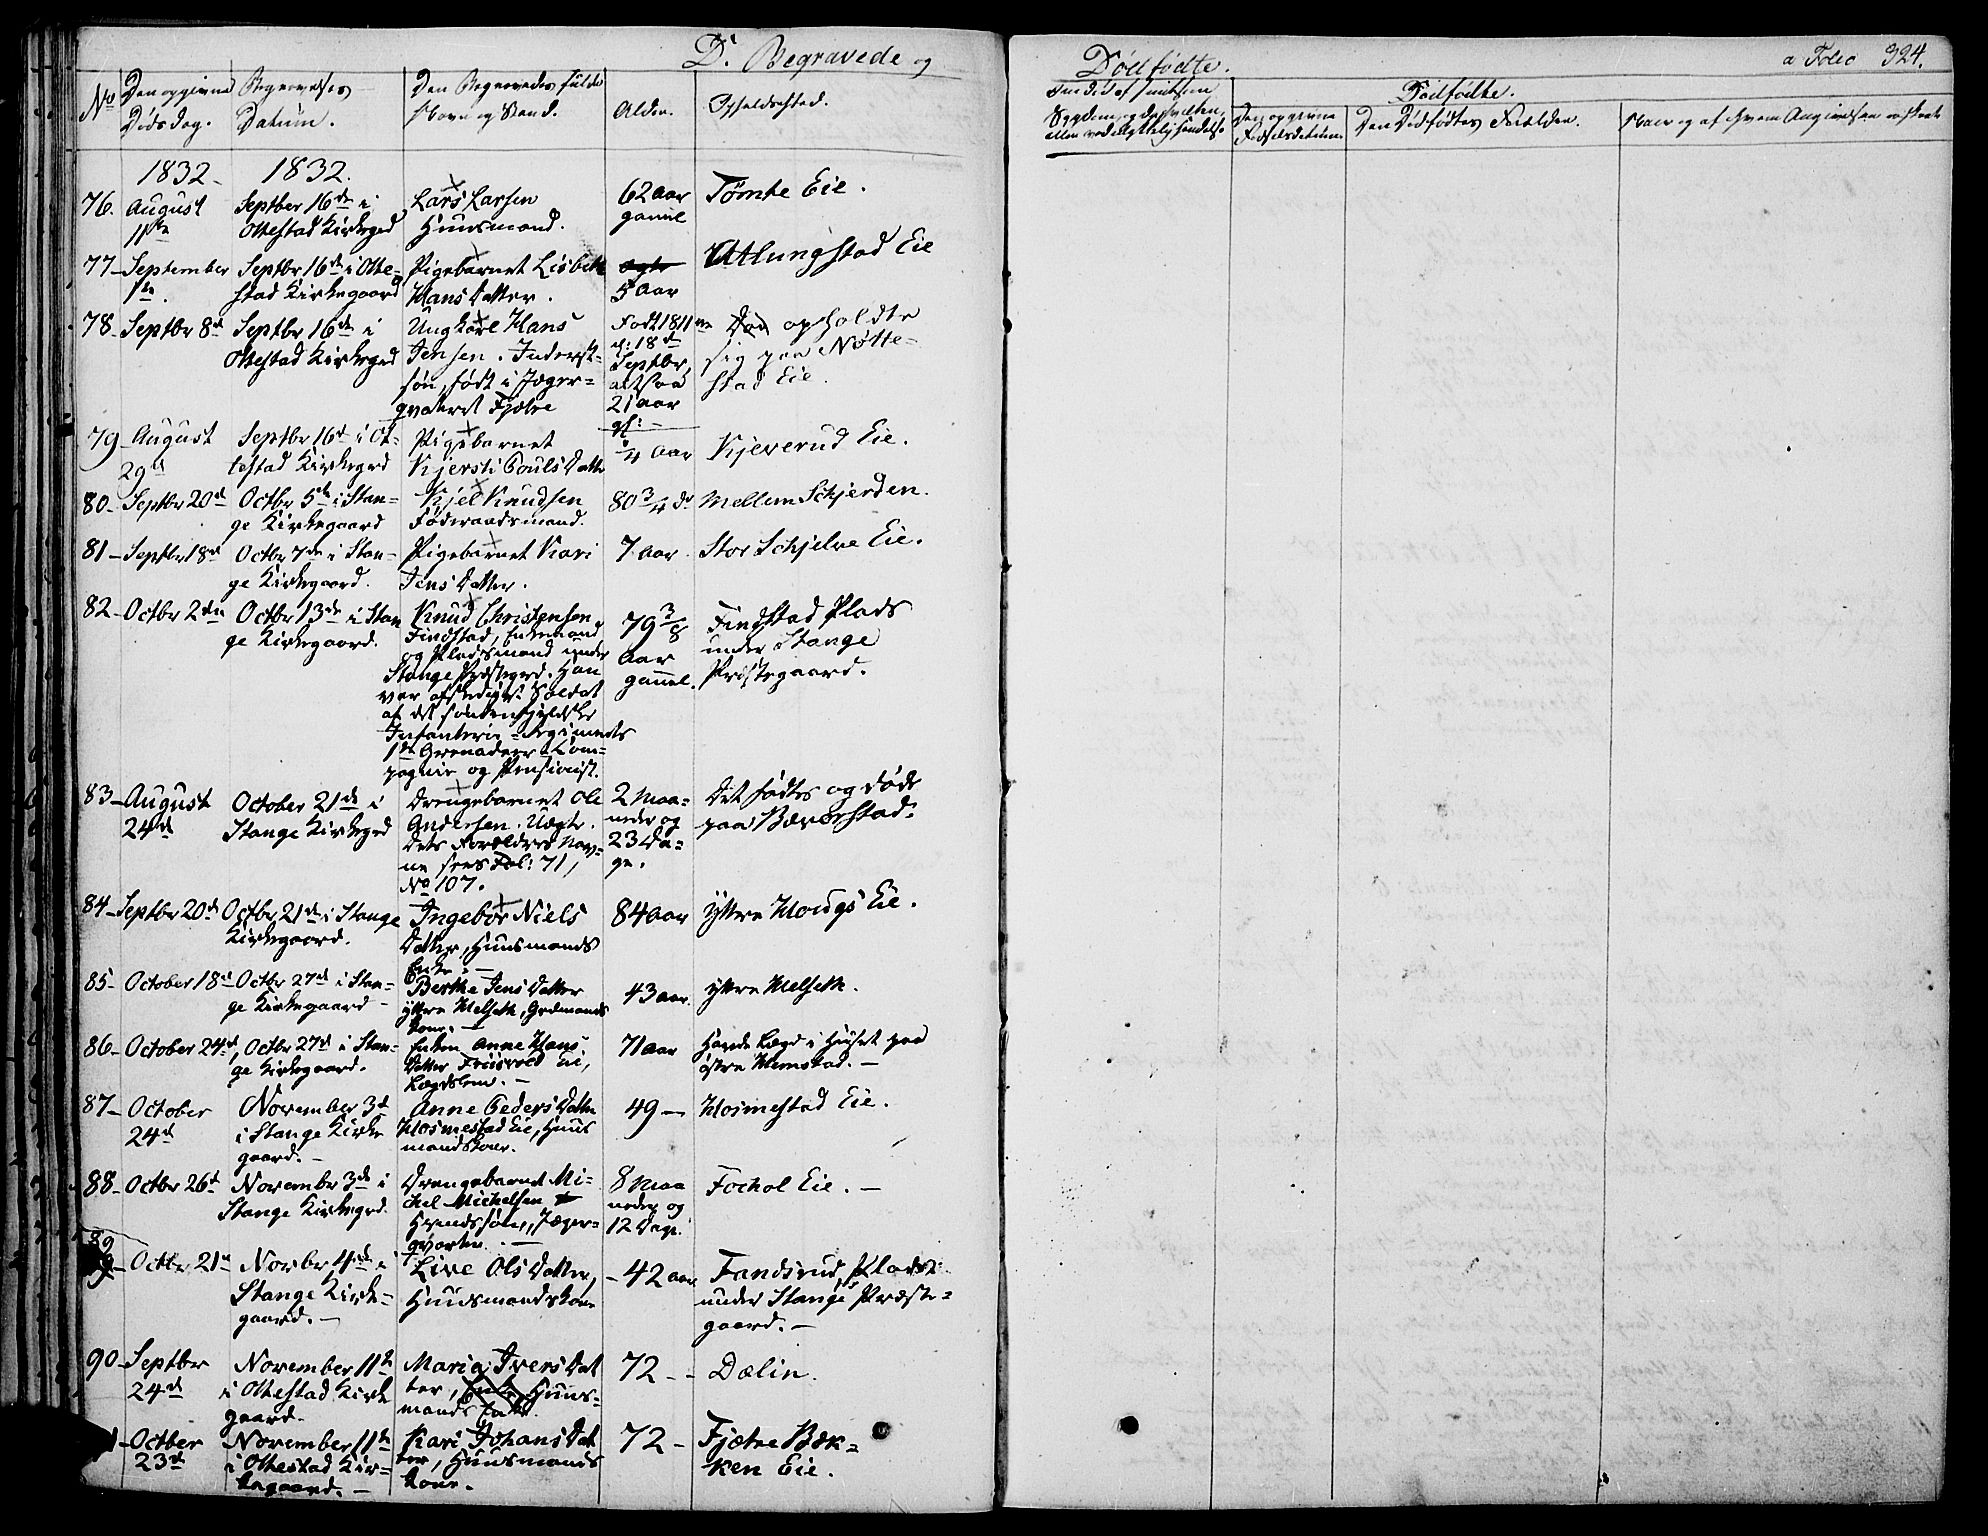 D. Begravede og
No
Den opgivne
Døds Dag.
Begravelses
Datum.
Den Begravedes fulde
Navn og Stand.
Alder.
Opholdssted.
1832
1832.
76.
August
11te
Septber 16de i
Ottestad Kirkegrd
Lars Larsen
Huusmand.
62 Aar
gamel
Tømte Eie.
77
September
1te
Septbr 16de i Otte-
stad Kirkegaard
Pigebarnet Lisbeth
Hans Datter.
5 Aar
Atlungstad Eie
78
Septbr 8de
Septbr 16de i
Ottestad Kirkegrd
Ungkarl Hans
Jensen. Inderst-
søn, født i Jæger-
qvateret Fjetre
Født 1811
d: 18de
Septbr,
altsaa
21 aar
gl: -
opholdte
sig paa Nøtte-
stad Eie.
79
August
29de
Septbr 16de i Ot-
testad Kirkegrd
Pigebarnet
Kjersti Pouls Datter
1/4 Aar
Kjeverud Eie.
80
Septbr 20de
Octbr 5te i Stan-
ge Kirkegaard
Kjel Knudsen
Føderaadsmand.
80 3/4 do
Mellem Schjerden.
81
Septbr 18de
Octbr 7de i Stan-
ge Kirkegaard.
Pigebarnet Kari
Jens Datter.
7 Aar.
Stor Schjelve Eie.
82
Octbr 2den
Octbr 13de i Stan
ge Kirkegaard.
Knud Christensen
Findstad, Enkemand
og Pladsmand under
Stange Præstegrd. Han
var afskediget Soldat
af det søndenfjeldske
Infanterie-Regiments
1ste Grenadeer-Com-
pagnie og Pensionist.
79 3/8
Aar
gamel.
Findstad Plads
under Stange
Præstegaard.
83
August
24de
October 21de i
Stange Kirkegrd
Drengebarnet Ole
Andersen. Uægte.
Dets Forældres Nav-
ne sees Fol: 71,
No 107.
2 Maa-
neder og
23 Da-
ge.
Det fødtes og døde
paa Bæverstad.
84
Septbr 20de
Octbr 21de i Stange
Kirkegaard.
Ingebor Niels
Datter, Huusmands
Enke. -
84 Aar
Yttre Hougs Eie.
85
October 18de
Octbr 27de i Stan-
ge Kirkegaard -
Berthe Jens Datter
yttre Helseth, Grdmands
Kone. -
43 aar.
yttre Helseth.
86
October 24de
Octbr 27de i Stan-
ge Kirkegaard.
Enken Anne Hans
Datter Friisvold Eie,
Lægdslem. -
71 Aar
Havde Lægd i Huset paa
østre Hemstad. -
87
October
24de
November 3de
i Stange Kirke
gaard. -
Anne Peders Datter
Hosmestad Eie, Huus
mandskone.
49 -
Hosmestad Eie.
88
Octbr 26de
Novembr 3de i
Stange Kirkegrd.
Drengebarnet Mi-
chel Michelsen
Svendssøn, Jæger-
qvarter. -
8 Maa
neder og
12 Dage.
Fochol Eie. -
89
Octbr 21de
Novbr 4de i
Stange Kirke-
gaard. -
Live Ols Datter,
Huusmandskone
42 aar
Fandsrud, Plads
under Stange Præste-
gaard. -
90
Septbr
24de
November 11te
i Ottestad Kirke
gaard.
Maria Ivers Dat
ter, Huus-
mands
72 -
Dælin.
Octber
23de
November 11te
i Ottestad Kir-
kegaard. -
Kari Johans Dat
ter, Huusmands
Kone.
72 -
Fjetre Bæk-
ken Eie.
Dødfødte.
a Folio 324.
Sygdom, og da hvilken,
eller ved ulykkelig Hændelse
Dødfødte.
Den opgivne
Fødselsdatum
Den Dødfødtes Forældre.
Naar og af hvem Angivelsen er skeet